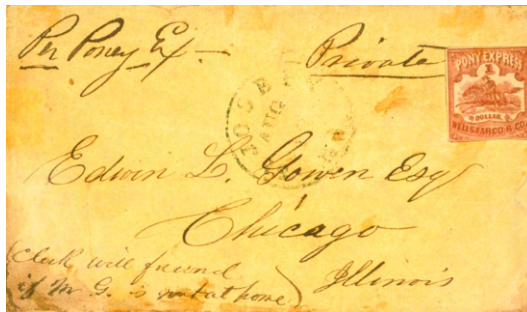 Per Poney Ex
Private
PONY EXPRESS
1
DOLLAR.
WELLS FARGO & CO.
AUG
Edwin L. Gowen Esq
Chicago
Illinois
Clerk will forward
if Mr G. is not at home